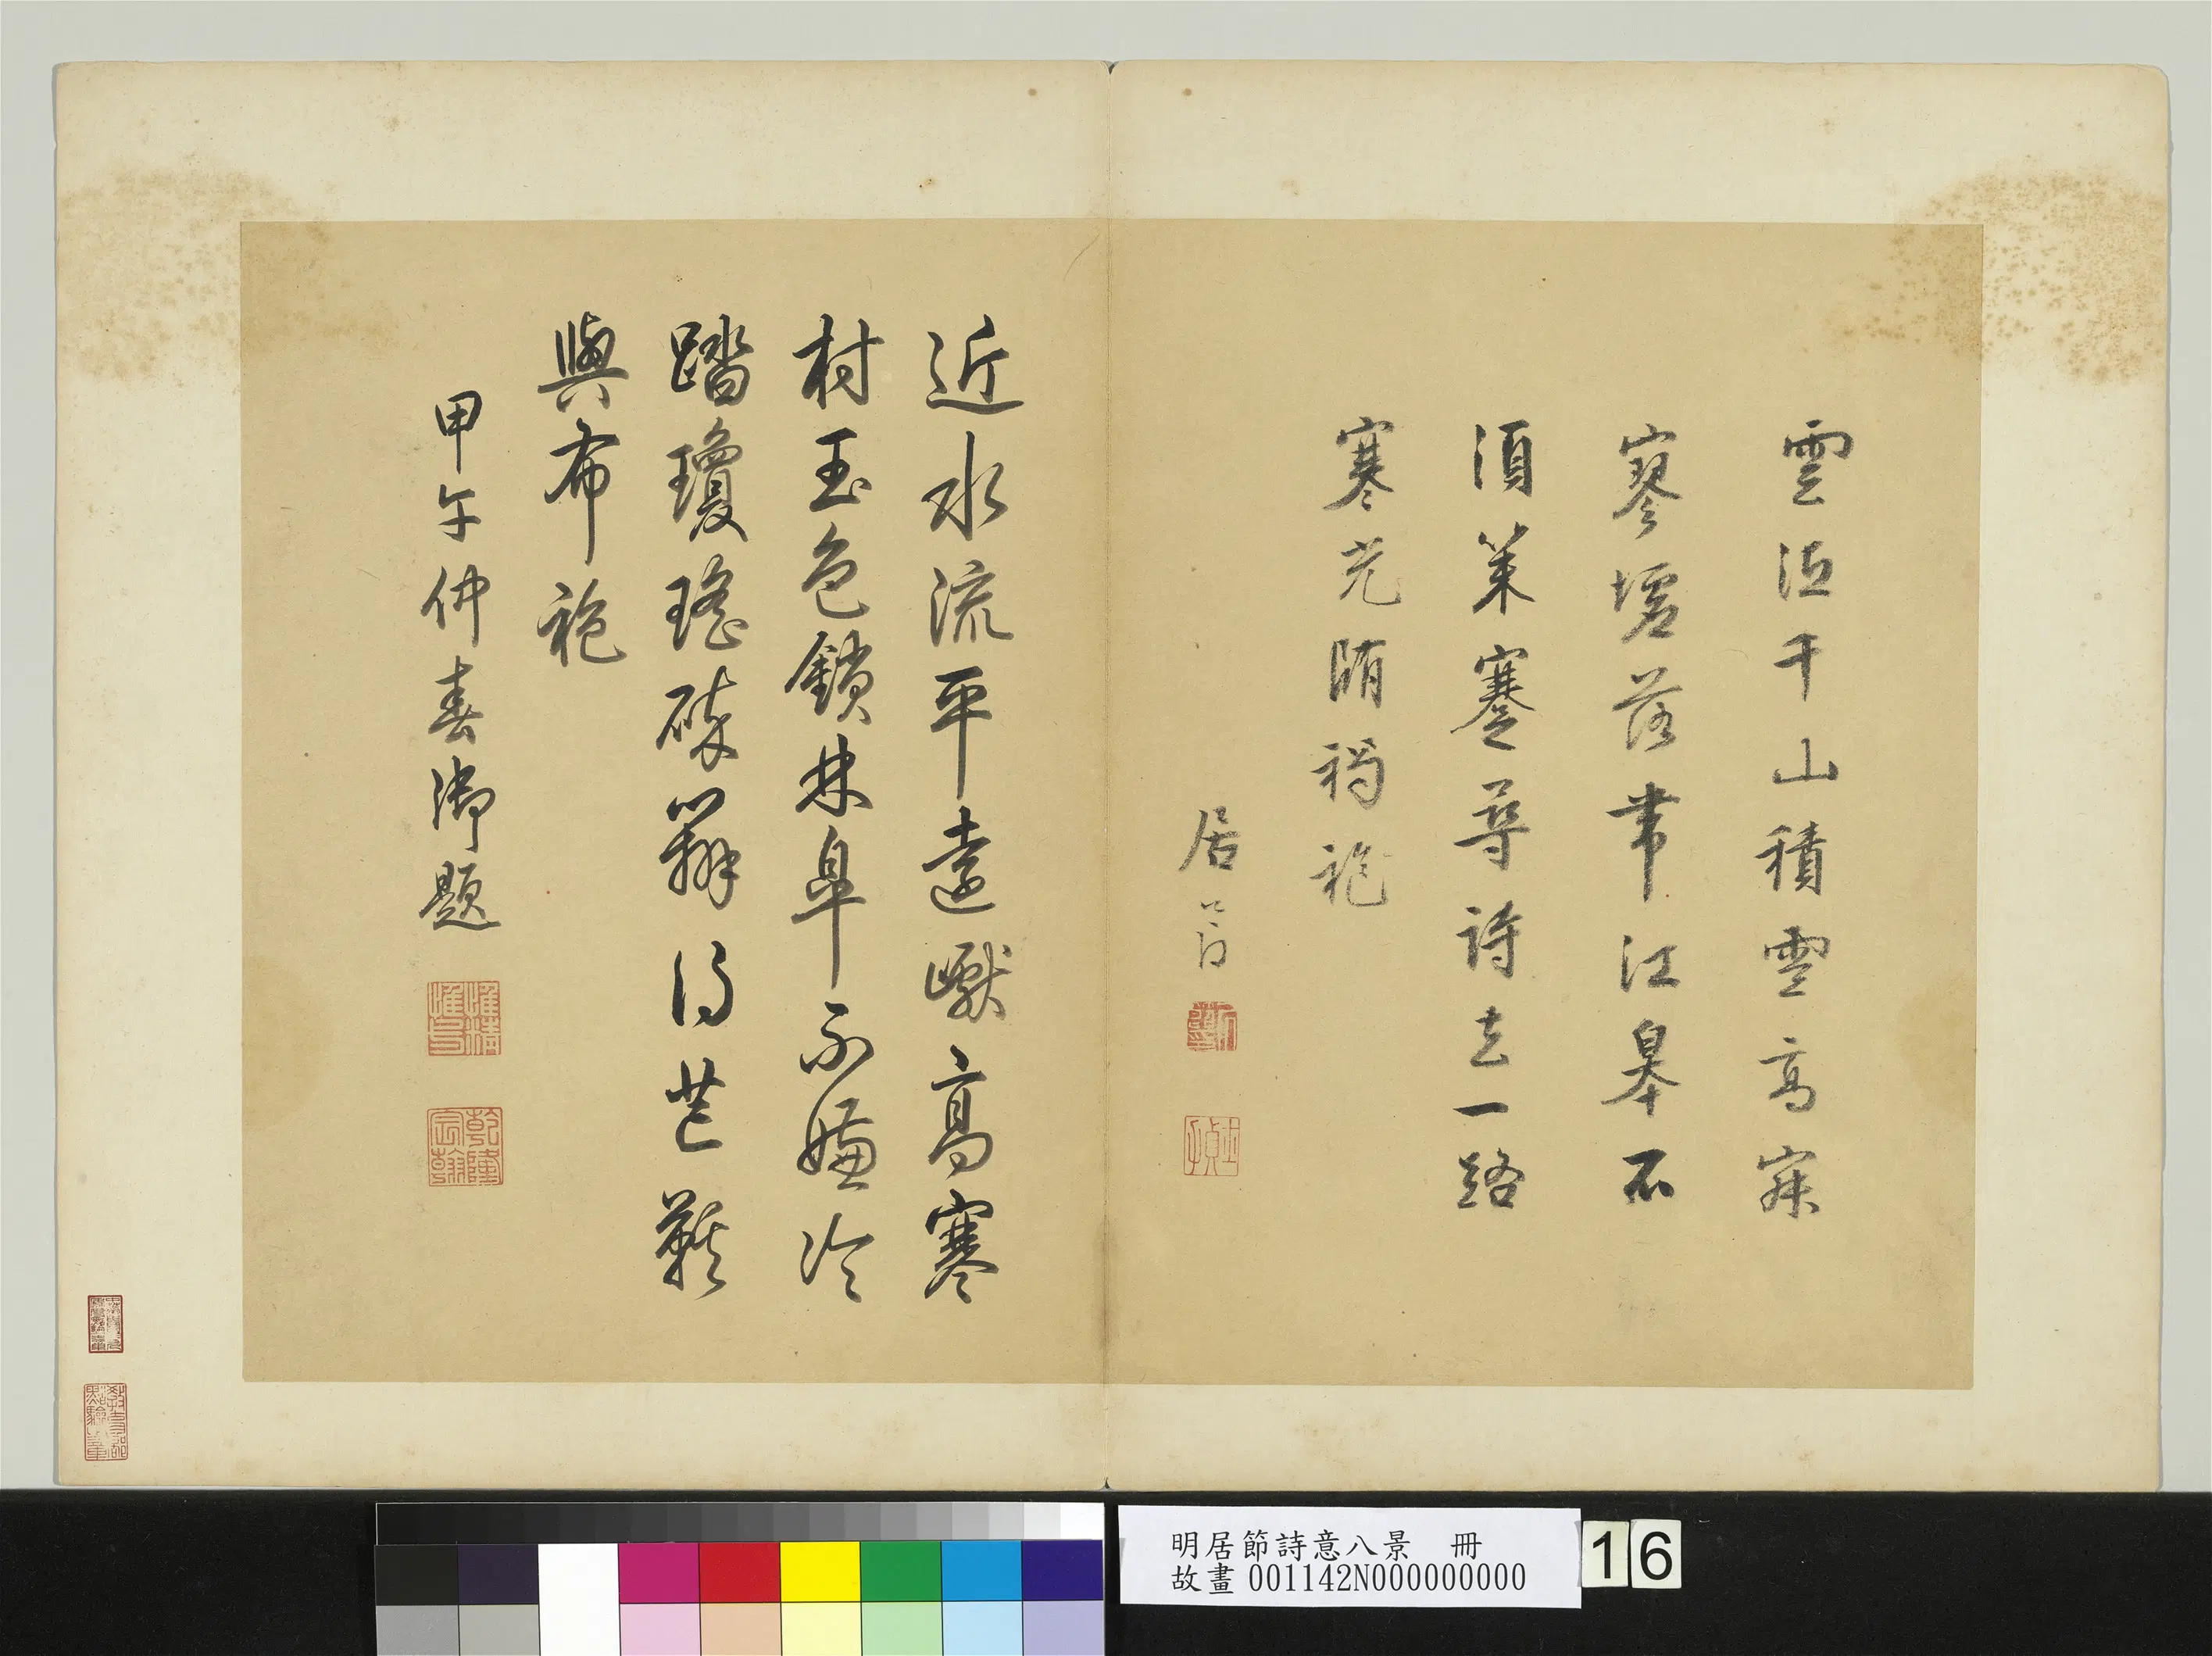 雲沍千山積雪高寂
寥墟落帶江皋不
須策蹇尋詩去一路
寒光隨褐袍
居節
近水流平遠巘高寒
村玉色鎖林皐不嫌冷
踏瓊瑤碎辦得芒鞵
與布袍
甲午仲春御題
惟精惟一
乾隆宸翰
明居節詩意八景 冊
故畫 001142N000000000
16